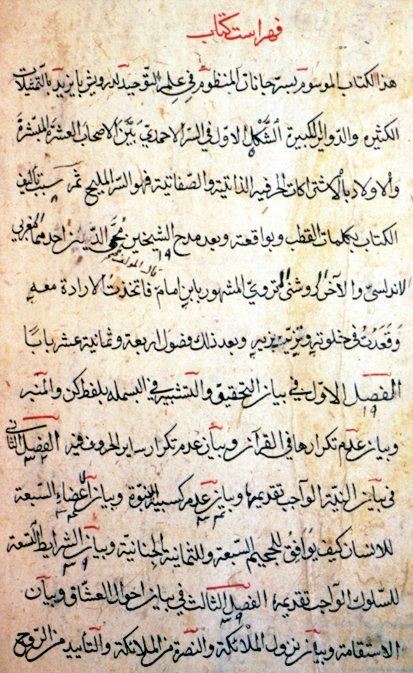 فهراست كتاب
هذا الكتاب الموسوم بسرّ جانان المنظوم في علم التوحيد لدرويش بايزيد بالتمثيلات
الكثيره والدواير الكبيرة الشكل الاول في السرّ الاحمدي بيّن الاصحاب العشرة المبشرة
والاولاد بالاشتراكات الحرفيه الذاتية والصفاتية فهو السرّ المليح ثم سبب تاليف
الكتاب بكلمات القطب وبواقعته وبعد مدح الشيخين محيي الدينين احدهما المغربي
الاندلسي والآخر الرومي المشهور بابن امام فاتخذت الارادة معه
وقعدت في خلوته وبعد ذلك فصول اربعة وثمانية عشر بابًا
الفصل الاول في بيان التحقيق والتشبير في البسمله بلفظ كن والمنبر
وبيان عدم تكرارها في القرآن وبيان عدم تكرار ساير الحروف فيه الفصل الثاني
في بيان النية الواجب تقديمها وبيان عدم كسبية النبوة وبيان اعضاء السبعة
للانسان كيف يوافق للجحيم السبعة وللثمانية الجنانية وبيان الشرايط التسعة
للسلوك الواجب تقديمها الفصل الثالث في بيان احوال العشاق وبيان
الاستقامة وبيان نزول الملائكة والنصرة من الملائكة والتأييد من الروح